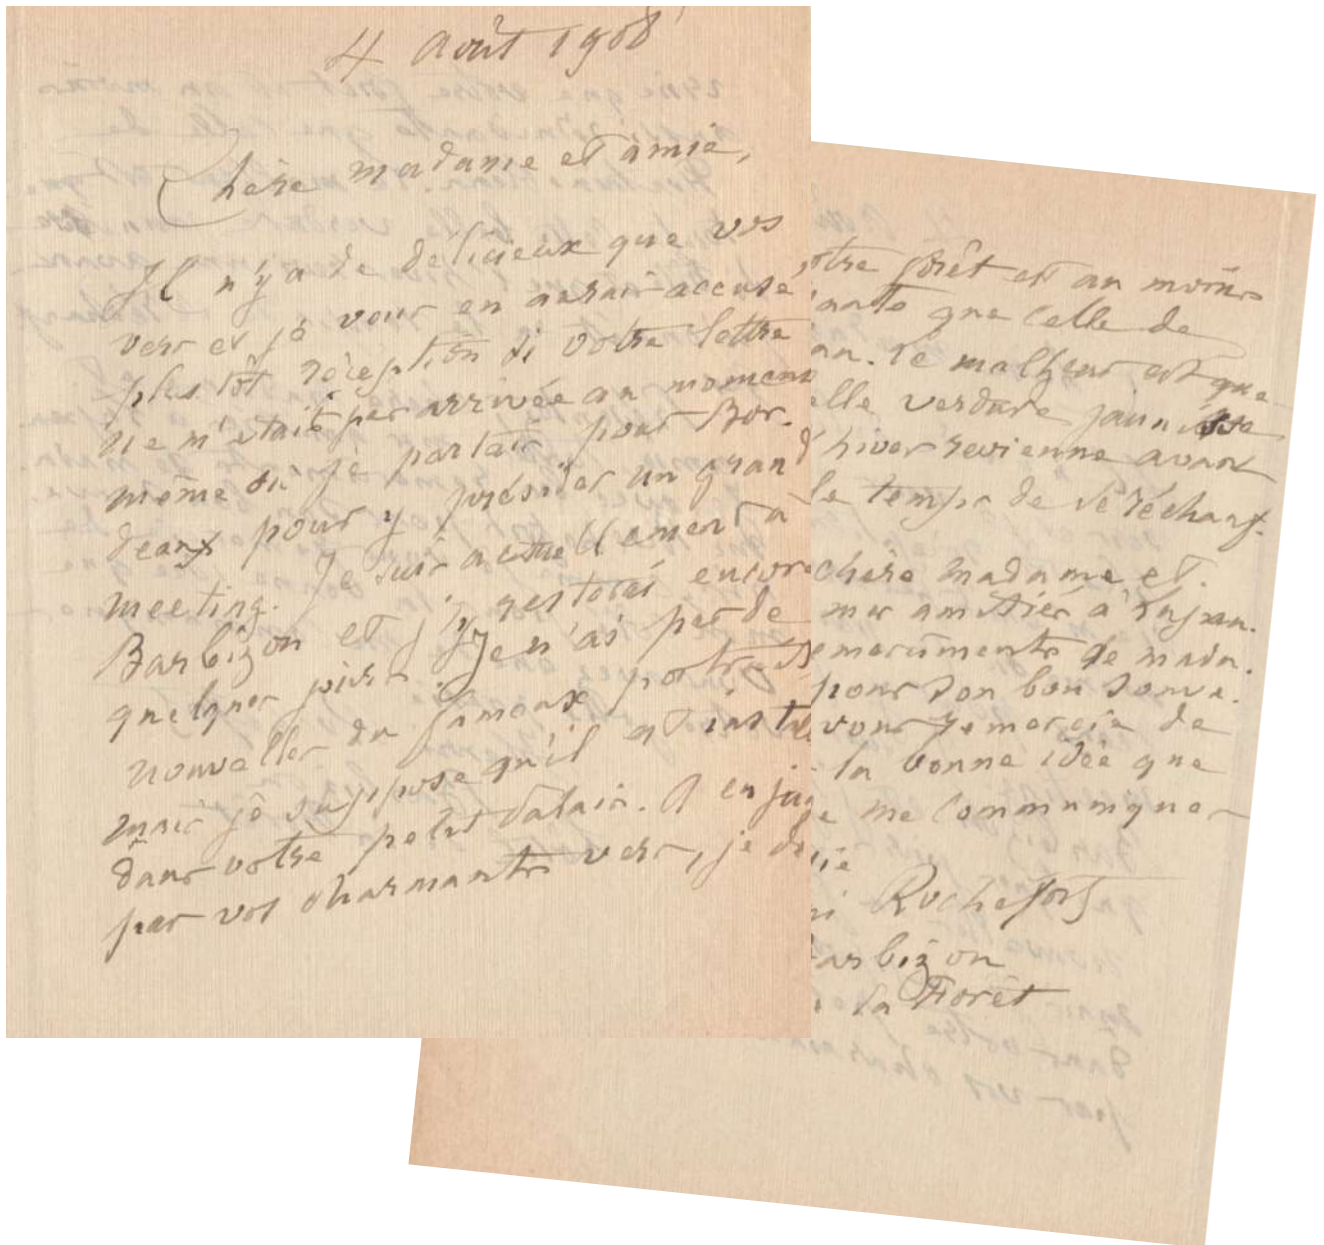 4 Août 1908
Chère madame et amie,
Il n'y a de délicieux que vos
vers et je vous en aurais accusé
plus tôt réception si votre lettre
ne m'était pas arrivée au moment
même où je partais pour Bor-
deaux pour y présider un grand
meeting. Je suis actuellement à
Barbizon et j'y resterai encore
quelques jours. Je n'ai pas de
nouvelles du fameux portrait
mais je suppose qu'il est
dans votre petit Palais. A en
par vos charmants vers, je
forêt est au moins
que celle de
Le malheur est que
verdure jaunisse
hiver revienne avant
temps de se réchauf-
chère madame et
mes amitiés à
de mada-
pour son bon souve-
vous remercie de
la bonne idée que
me communiquer
Rochefort
la Forêt